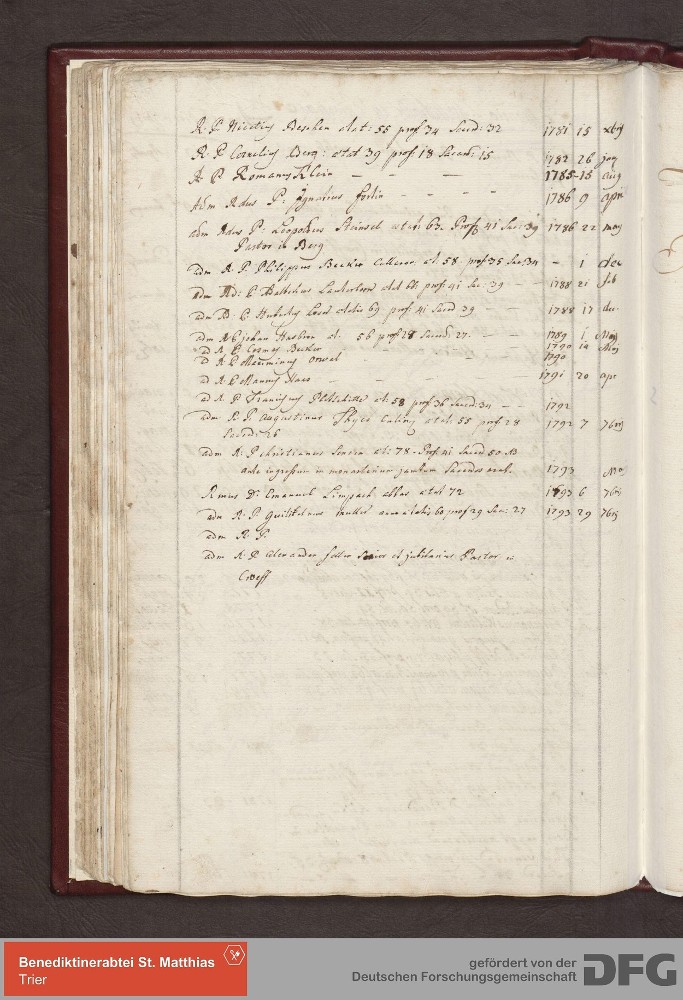 R. P. Nicetius Beschen aetat: 55 prof 34 Sacerd: 32 1781 15 xbris
R. P. Cornelius Berg: aetat 39 prof 18 Sacerd: 15 1782 26 jan
R. P. Romanus Klein — — — 1785 - 15 aug
Adm Rdus P: Ignatius fortin - - - - 1786 9 april
adm Rdus P. Leopoldus aetat: 63. Prof. 41 Sac: 39 1786 22 may
Pastor in Berg
adm R. P. Philippus Becker Cellerar. aet. 58 prof 35 Sac 34 — 1 dec
adm Rd: P. aetat 66 prof: 41 Sac: 39 — — 1788 21 feb
adm R. P. Hubertus aetatis 69 prof. 41 Sacd 39 — — 1788 17 dec.
adm R P johan aet. 56 prof 28 Sacerd: 27. — — 1789 1 Maj
ad R. P. Becker — — 1790 Maj
d R. P. Maximinus 1790
d R. P. Haas — — — 1791 20 apr
ad R. P. Franciscus aet. 58 prof 36 Sacerd: 34 — — 1792
adm R. P. Augustinus aetat: 55 prof 28 1792 7 7bris
Sacerd: 26
adm R: P christianus aet: 78 - Prof. 41 Sacerd 50. NB
ante ingressum in monasterium jam Sacerdos erat. 1793
Rmus D. Emanuel Limpach abbas aetat 72 1793 6 7bris
adm R. P. muller aetatis 60 prof 29 Sac: 27 1793 29 7bris
adm R. P.
adm R. P. Alexander Senior et jubilarius Pastor in
Benediktinerabtei St. Matthias
Trier
gefördert von der
Deutschen Forschungsgemeinschaft
DFG